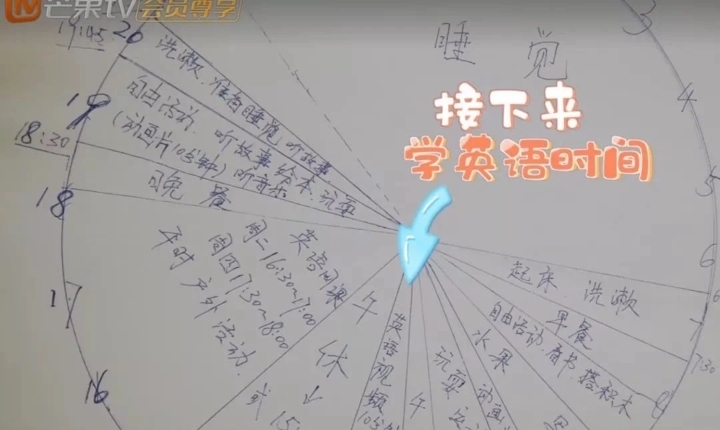 芒果TV
会员尊享
3
4
5
6
7
7:30
8
睡觉
接下来
学英语时间
20
19:45
19
18:30
18
17
16
洗漱、准备睡觉、听故事
自由活动、听故事、绘本、玩耍
(动画片10分钟)听音乐
晚餐
英语网课
周二16:30~17:00
周四17:30~18:00
平时户外活动
午休
↓
或15
英语视频10分钟
午
玩耍
动画
水果
自由活动、看书、搭积木
早餐
起床 洗漱